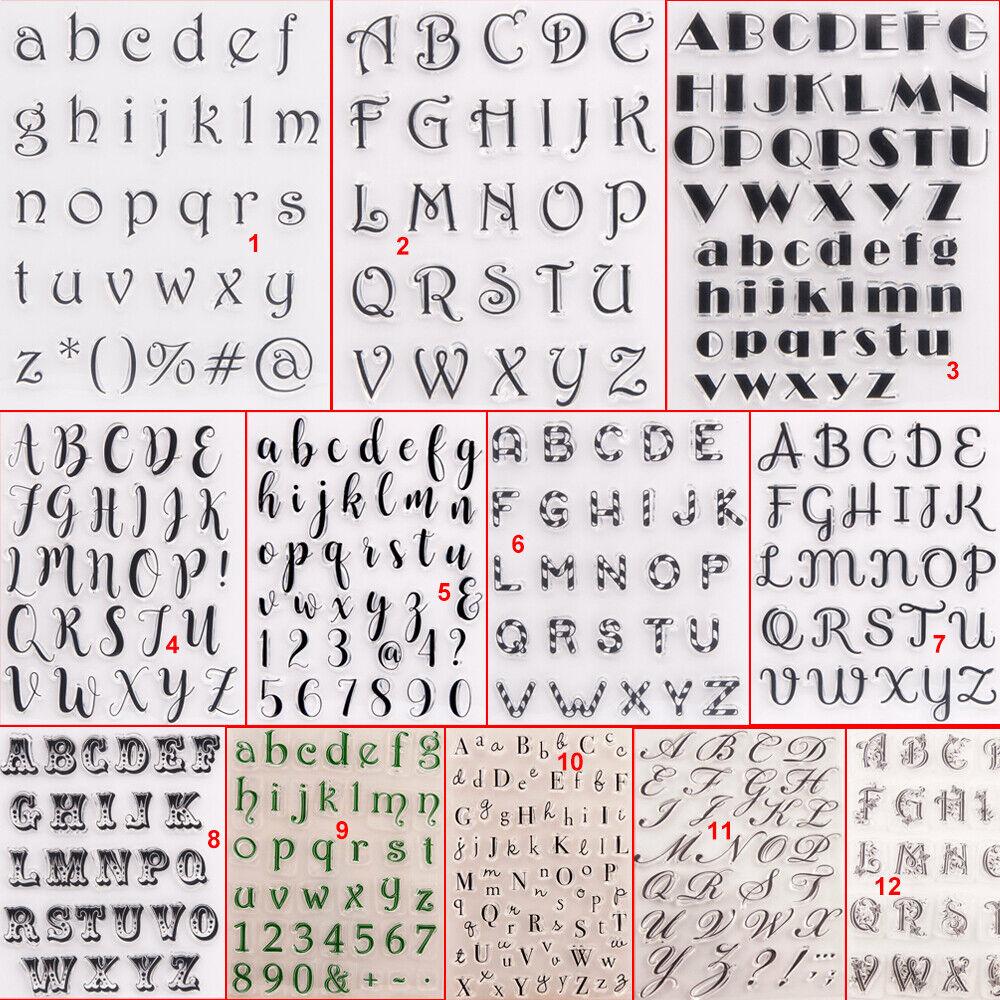 a b c d e f
g h i j k l m
n o p q r s
1
t u v w x y
z * ( ) % # @
A B C D E
F G H I J K
L M N O P
2
Q R S T U
V W X Y Z
A B C D E F G
H I J K L M N
O P Q R S T U
V W X Y Z
a b c d e f g
h i j k l m n
o p q r s t u
3
v w x y z
A B C D E
F G H I J K
L M N O P !
Q R S T U
4
V W X Y Z
a b c d e f g
h i j k l m n
o p q r s t u
v w x y z &
5
1 2 3 @ 4 ?
5 6 7 8 9 0
A B C D E
F G H I J K
6
L M N O P
Q R S T U
V W X Y Z
A B C D E
F G H I J K
L M N O P
Q R S T U
7
V W X Y Z
A B C D E F
G H I J K
8
L M N P Q
R S T U V O
W X Y Z
a b c d e f g
h i j k l m n
9
o p q r s t
u v w x y z
1 2 3 4 5 6 7
8 9 0 & + ~ ·
A a a B b b C c c
10
d d D e e E f f F
G g g G H h h i I i
j j J k k K l l L
M m m N n n O o o P p p
q q Q r r R s s S t T
t U u u v V v W w w
X x x Y y y Z z z
A B C D
E F G H
I J K L
11
M N O P
Q R S T
U V W X
Y Z ? ! , ; :
A B C
F G H I
L M N
12
Q R S
V W X